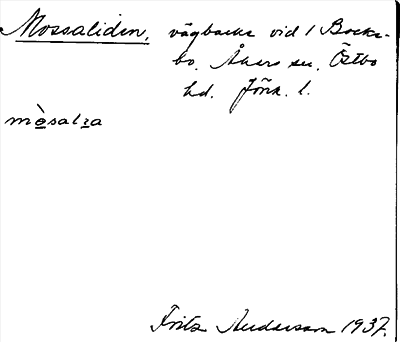 Mossaliden, vägbacke vid 1 Bocks-
bo, Åkers sn. Östbo
hd. Jönk. l.
mòsalıa
Fritz Andersson 1937.